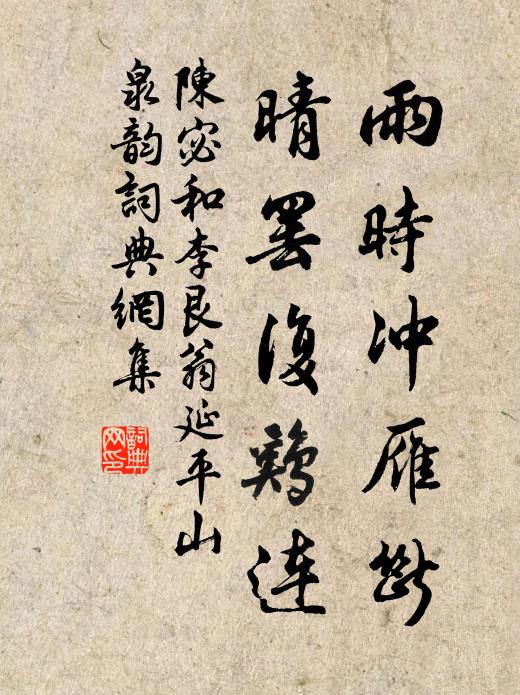 雨時冲雁斷
晴罢復鷄連
陳宓和李艮翁延平山
泉韵詞典網集
詞典网印